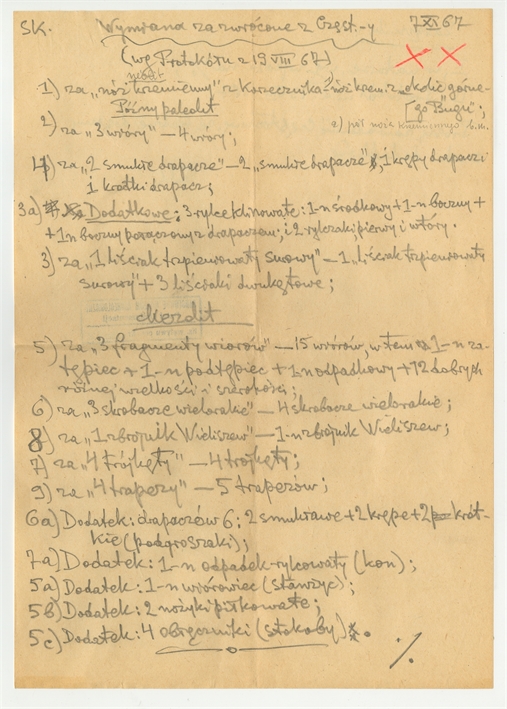 SK. Wymiana za zwrócone z Częst.-y 7 XI 67
(wg Protokółu z 19 VIII 67)
1) za „nóż krzemienny" z Korzecznika - nóż krzem. z „okolic górne-
[go Bugu";
Późny paleolit
2) za „3 wióry" — 4 wióry;
4) za „2 smukłe drapacze" — 2 „smukłe drapacze", 1 krępy drapacz i
1 krótki drapacz;
3a) Dodatkowe: 3 rylce klinowate: 1-n środkowy + 1-n boczny +
+ 1 n boczny połączony z drapaczem; i 2 rylczaki, pierwy i wtóry.
3) za „1 liściak trzpieniowaty surowy" — 1 „liściak trzpieniowaty
surowy" + 3 liściaki dwukątowe;
Mezolit
5) za „3 fragmenty wiórów" — 15 wiórów, w tem 1-n za-
tępiec + 1-n podtępiec + 1 n odpadkowy + 12 dobrych
różnej wielkości i szerokości;
6) za „3 skrobacze wielorakie" — 4 skrobacze wielorakie;
8) za „1 zbrojnik Wieliszew" — 1-n zbrojnik Wieliszew;
7) za „4 trójkąty" — 4 trójkąty;
9) za „4 trapezy" — 5 trapezów;
6a) Dodatek: drapaczów 6: 2 smukławe + 2 krępe + 2 krót-
kie (podgroszaki);
7a) Dodatek: 1-n odpadek-rylcowaty (kon);
5a) Dodatek: 1-n wiórowiec (stawżyc);
5b) Dodatek: 2 nożyki piłkowate;
5c) Dodatek: 4 obręczniki (stokoby).
%